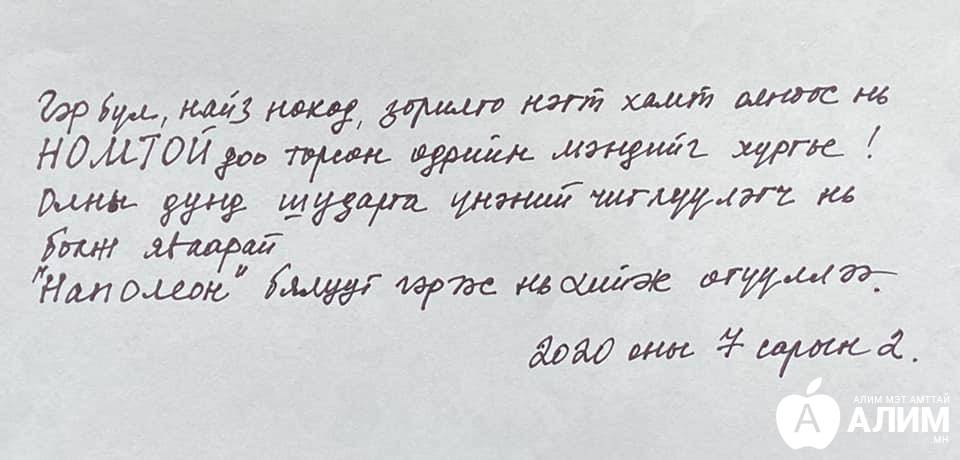 Гэр бүл, найз нөхөд, зорилго нэгт хамт олноос нь
НОМТОЙ доо төрсөн өдрийн мэндийг хүргье!
Олны дунд шударга үнэний чиглүүлэгч нь
болж яваарай
"Наполеон" бялууг гэрээс нь хийж өгүүллээ.
2020 оны 7 сарын 2.
АЛИМ МЭТ АМТТАЙ
АЛИМ
.МН